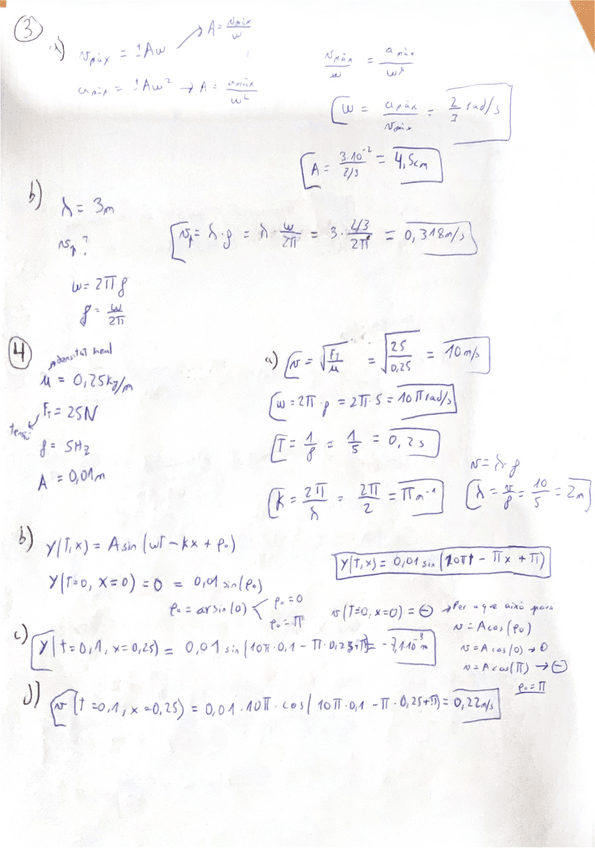 3
a) v_màx = ±Aω → A = v_màx/ω
a_màx = ±Aω² → A = a_màx/ω²
v_màx/ω = a_màx/ω²
ω = a_màx/v_màx = 2/3 rad/s
A = 3·10⁻²/2/3 = 4,5cm
b) λ = 3m
v_p?
v_p = λ·f = λ·ω/2π = 3·2/3/2π = 0,318m/s
ω = 2πf
f = ω/2π
4
densitat lineal
μ = 0,25kg/m
tensió F_T = 25N
f = 5Hz
A = 0,01m
a) v = √(F_T/μ) = √(25/0,25) = 10m/s
ω = 2π·f = 2π·5 = 10π rad/s
T = 1/f = 1/5 = 0,2s
v = λ·f
K = 2π/λ = 2π/2 = π m⁻¹
λ = v/f = 10/5 = 2m
b) y(T,x) = A sin(ωT - kx + φ₀)
y(T,x) = 0,01 sin(10πt - πx + π)
y(T=0, x=0) = 0 = 0,01 sin(φ₀)
φ₀ = arsin(0) < φ₀=0
φ₀=π
v(T=0, x=0) = ⊖ → Per a que això
v = A cos(φ₀)
v = A cos(0) →
v = A cos(π) → ⊖
φ₀=π
c) y(t=0,1, x=0,25) = 0,01 sin(10π·0,1 - π·0,25+π) = -7,1·10⁻³m
d) v(t=0,1, x=0,25) = 0,01·10π·cos(10π·0,1 - π·0,25+π) = 0,22m/s